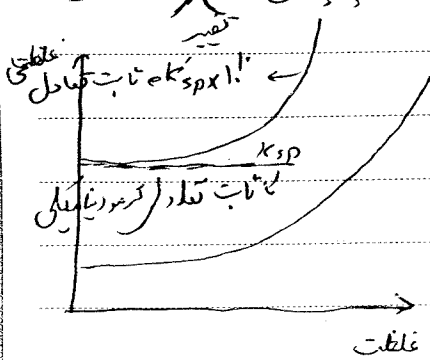 تغییر
غلظتی
ثابت تعادل k'sp x1!
ksp
ثابت تعادل ترمودینامیکی
غلظت